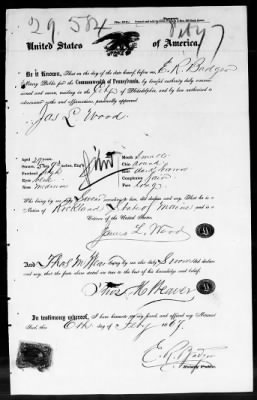 29,584
United States of America.
Be it Known, That on the day of the date hereof, before me, E. R. Badger
a Notary Public for the Commonwealth of Pennsylvania, by lawful authority duly commissioned
and sworn, residing in the City of Philadelphia, and by law authorized to
administer oaths and affirmations, personally appeared
Jas L. Wood
Aged
Stature
Forehead high
Eyes
Nose medium
Mouth small
Chin round
Hair
Complexion fair
Face long
Who being by me duly Sworn according to law, did declare that he is a
Native of Rockland State of Maine and is a
Citizen of the United States.
James L. Wood
And Thos M. Weaver being by me also duly Sworn did declare
and say, that the facts above stated are true to the best of his knowledge and belief.
Thos M Weaver
In testimony whereof, I have hereunto set my hand and affixed my Notarial
Seal, this 6th day of July 1867.
E. R. Badger
Notary Public.